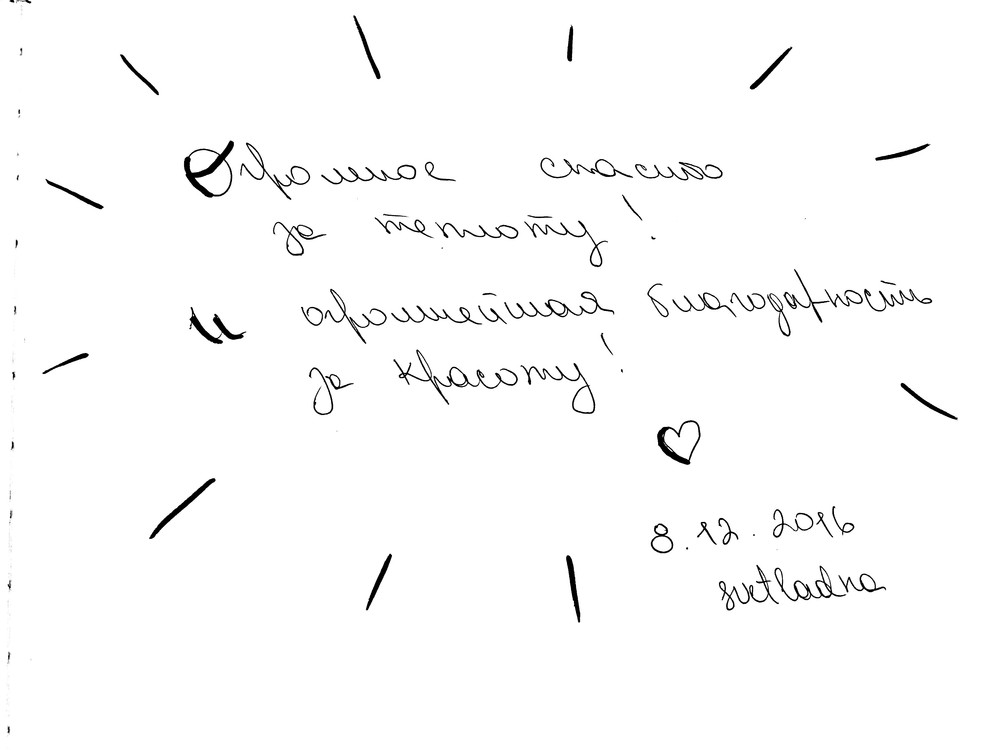 Огромное спасибо
за теплоту!
и огромнейшая благодарность
за красоту!
8.12.2016
svetladna